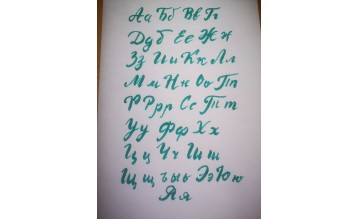 Аа Бб Вв Гг
Дд б Ее Жж
Зз Ии Кк Лл
Мм Нн Оо Пп
Р Рр р Сс Тт
Уу Фф Хх
Цц Чч Шш
Щщ ъыь Ээ Юю
Яя